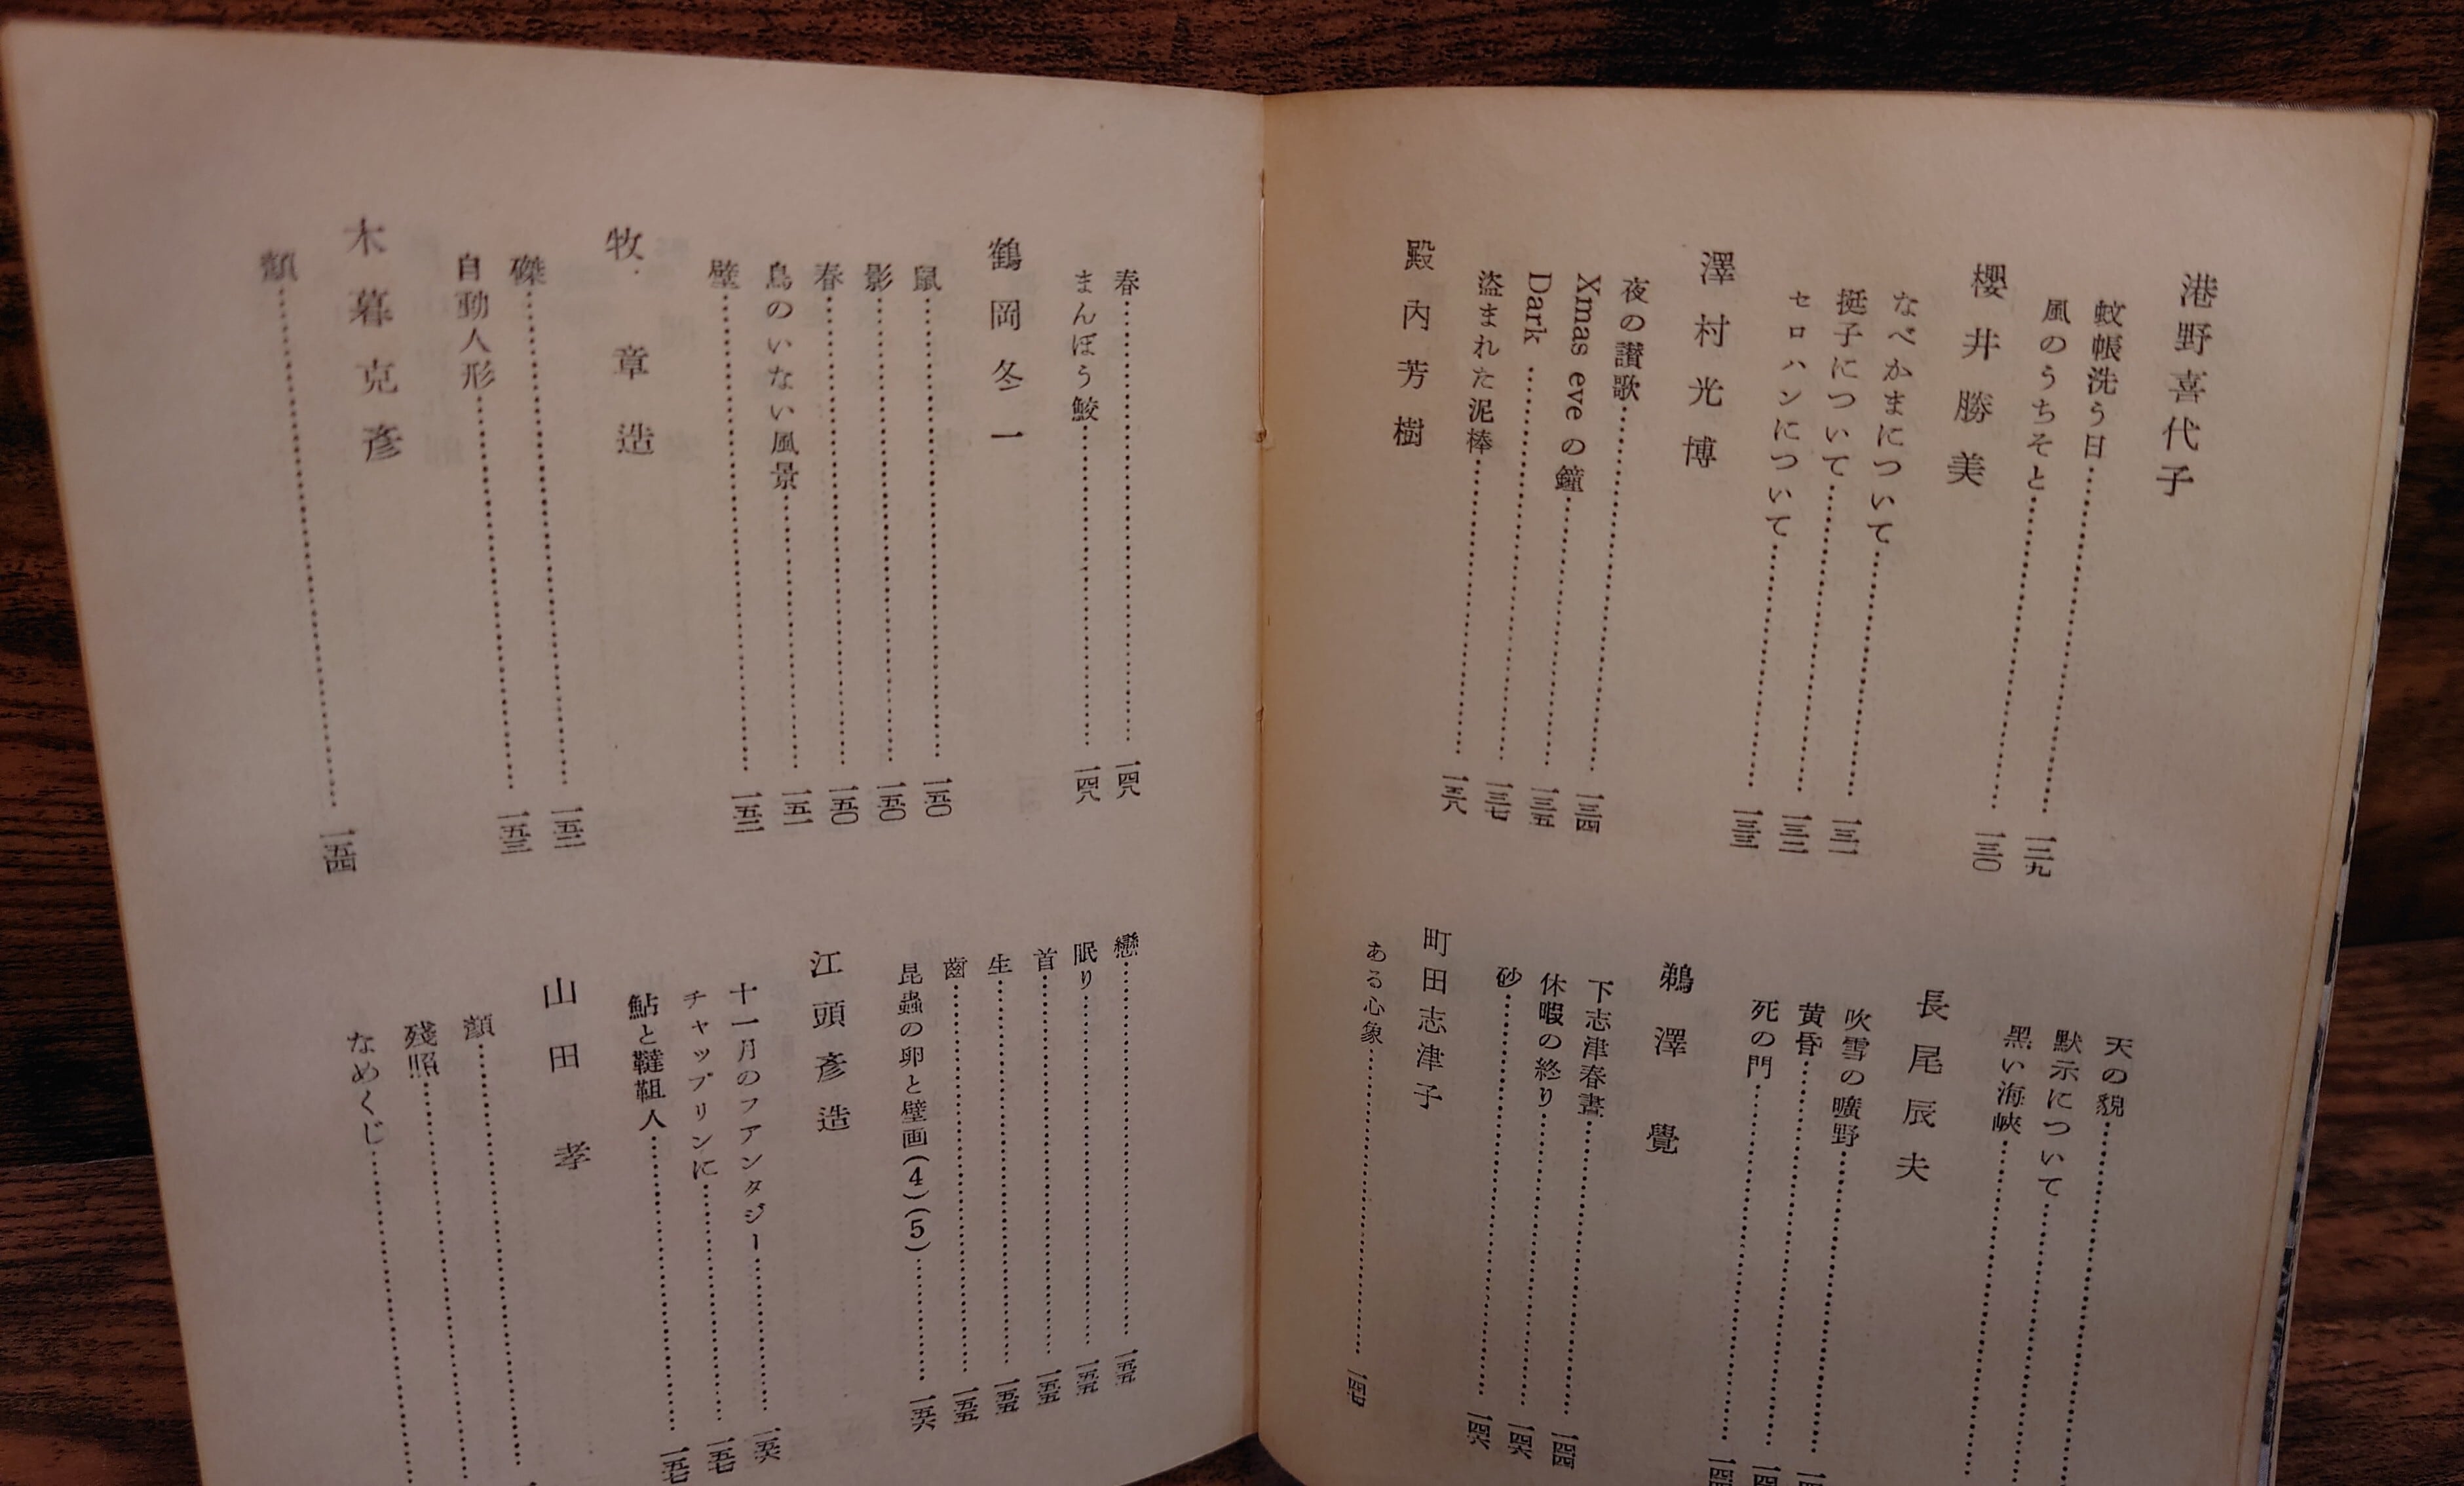 港野喜代子
蚊帳洗う日……一二九
風のうちそと……一三〇
櫻井勝美
なべかまについて……一三一
挺子について……一三二
セロハンについて……一三三
澤村光博
夜の讃歌……一三四
Xmas eve の鐘……一三五
Dark……一三七
盗まれた泥棒……一三八
殿内芳樹
天の貌……
黙示について……
黒い海峡……
長尾辰夫
吹雪の曠野……
黄昏……
死の門……
鵜澤覺
下志津春晝……一四四
休暇の終り……一四六
砂……一四六
町田志津子
ある心象……一四七
春……一四八
まんぼう鮫……一四八
鶴岡冬一
鼠……一五〇
影……一五〇
春……一五〇
鳥のいない風景……一五一
壁……一五二
牧章造
磔……一五二
自動人形……一五三
木暮克彦
顔……一五四
戀……一五五
眠り……一五五
首……一五五
生……一五五
齒……一五五
昆蟲の卵と壁画(4)(5)……一五六
江頭彦造
十一月のファンタジー……一五六
チャップリンに……一五七
鮎と韃靼人……一五七
山田孝
顔……
残照……
なめくじ……